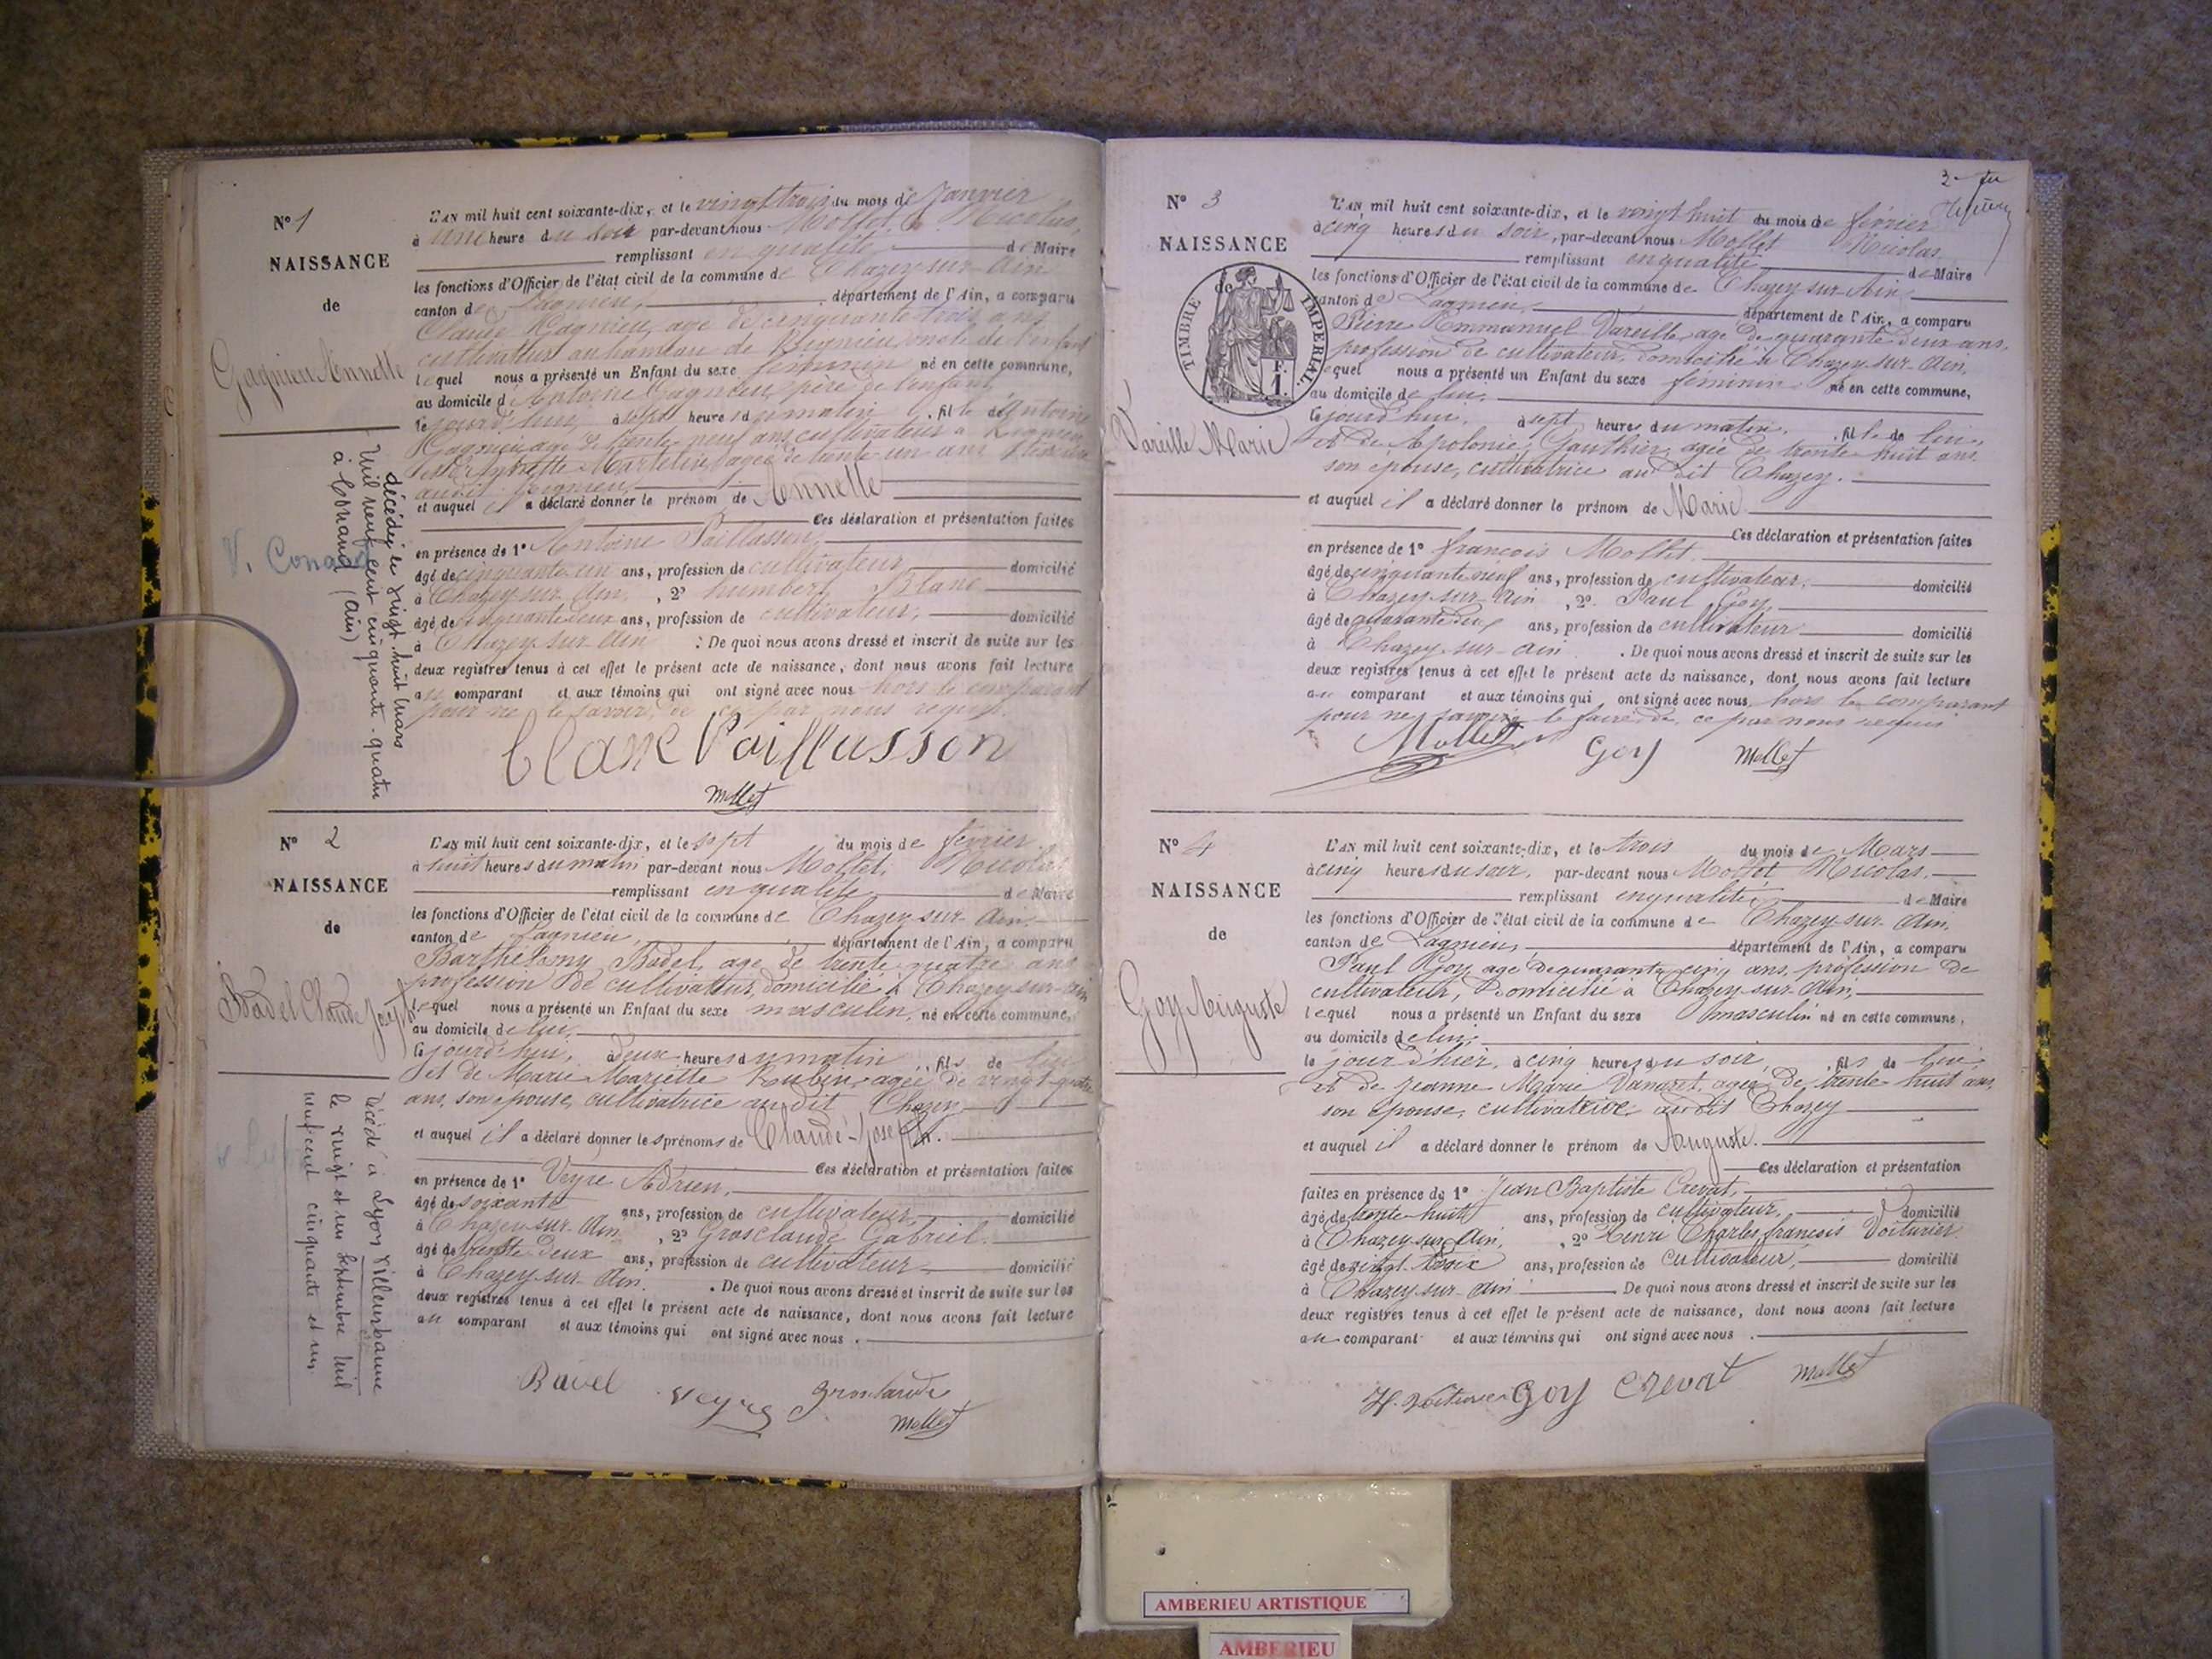 N° 1
NAISSANCE
de
Gagnieu Annette
décédée le vingt huit mars
mil neuf cent cinquante-quatre
à Conand (Ain)
V. Conand
L'AN mil huit cent soixante-dix, et le vingt trois du mois de Janvier
à une heure du soir par-devant nous Mollet Nicolas,
remplissant en qualité de Maire
les fonctions d'Officier de l'état civil de la commune de Chazey-sur-Ain
canton de Lagnieu, département de l'Ain, a comparu
Claude Gagnieu, agé de cinquante trois ans
cultivateur au hameau de Rignieu, oncle de l'enfant
lequel nous a présenté un Enfant du sexe féminin né en cette commune,
au domicile d'Antoine Gagnieu, père de l'enfant,
le jourd'hui, à sept heures du matin, fille de Antoine
Gagnieu agé de trente neuf ans, cultivateur à Rignieu
trente un ans
audit Rignieu,
et auquel il a déclaré donner le prénom de Annette
Ces déclaration et présentation faites
en présence de 1° Antoine Paillasson,
âgé de cinquante un ans, profession de cultivateur domicilié
à Chazey sur Ain, 2° humbert Blanc
âgé de cinquante deux ans, profession de cultivateur, domicilié
à Chazey sur Ain : De quoi nous avons dressé et inscrit de suite sur les
deux registres tenus à cet effet le présent acte de naissance, dont nous avons fait lecture
au comparant et aux témoins qui ont signé avec nous hors le comparant
pour ne le savoir, de ce par nous requis.
blanc Paillasson
Mollet
N° 2
NAISSANCE
de
Badel Claude Joseph
décédé à Lyon Villeurbanne
le vingt et un Septembre mil
neuf cent cinquante et un
L'AN mil huit cent soixante-dix, et le sept du mois de février
à huit heures du matin par-devant nous Mollet, Nicolas
remplissant en qualité de Maire
les fonctions d'Officier de l'état civil de la commune de Chazey-sur-Ain,
canton de Lagnieu, département de l'Ain, a comparu
Barthélemy Badel, agé de trente quatre ans
profession de cultivateur, domicilié à Chazey-sur-Ain
lequel nous a présenté un Enfant du sexe masculin, né en cette commune,
au domicile de lui,
le jourd'hui, à deux heures du matin, fils de lui
et de Marie Mariette Rubin, agée de vingt quatre
ans, son épouse, cultivatrice au dit Chazey
et auquel il a déclaré donner les prénoms de Claude-Joseph.
Ces déclaration et présentation faites
en présence de 1° Veyre Adrien,
âgé de soixante ans, profession de cultivateur, domicilié
à Chazey-sur-Ain, 2° Grosclaude Gabriel.
âgé de trente deux ans, profession de cultivateur domicilié
à Chazey-sur-Ain. De quoi nous avons dressé et inscrit de suite sur les
deux registres tenus à cet effet le présent acte de naissance, dont nous avons fait lecture
au comparant et aux témoins qui ont signé avec nous.
Badel Veyre Grosclaude
Mollet
N° 3
NAISSANCE
de
TIMBRE IMPÉRIAL.
1 F.
Vareille Marie
L'AN mil huit cent soixante-dix, et le vingt huit du mois de février
à cinq heures du soir, par-devant nous Mollet Nicolas
remplissant en qualité de Maire
les fonctions d'Officier de l'état civil de la commune de Chazey-sur-Ain
canton de Lagnieu, département de l'Ain, a comparu
Pierre Emmanuel Vareille agé de quarante deux ans,
profession de cultivateur, domicilié à Chazey-sur-Ain,
lequel nous a présenté un Enfant du sexe féminin, né en cette commune,
au domicile de lui,
le jourd'hui, à sept heures du matin, fille de lui,
et de Apolonie Gauthier, agée de trente huit ans,
son épouse, cultivatrice au dit Chazey.
et auquel il a déclaré donner le prénom de Marie
Ces déclaration et présentation faites
en présence de 1° françois Mollet
âgé de cinquante neuf ans, profession de cultivateur, domicilié
à Chazey-sur-Ain, 2° Paul Goy,
âgé de quarante ans, profession de cultivateur domicilié
à Chazey-sur-Ain. De quoi nous avons dressé et inscrit de suite sur les
deux registres tenus à cet effet le présent acte de naissance, dont nous avons fait lecture
au comparant et aux témoins qui ont signé avec nous, hors le comparant
pour ne savoir le faire de ce par nous requis
Mollet Goy Mollet
N° 4
NAISSANCE
de
Goy Auguste
L'AN mil huit cent soixante-dix, et le trois du mois de Mars
à cinq heures du soir, par-devant nous Mollet Nicolas.
remplissant en qualité de Maire
les fonctions d'Officier de l'état civil de la commune de Chazey-sur-Ain,
canton de Lagnieu, département de l'Ain, a comparu
Paul Goy agé de quarante cinq ans, profession de
cultivateur, domicilié à Chazey-sur-Ain,
lequel nous a présenté un Enfant du sexe masculin né en cette commune,
au domicile de lui,
le jour d'hier, à cinq heures du soir, fils de lui
et de Jeanne Marie Vanaret, agée de trente huit ans,
son épouse, cultivatrice au dit Chazey
et auquel il a déclaré donner le prénom de Auguste.
Ces déclaration et présentation
faites en présence de 1° Jean Baptiste Crevat,
âgé de trente-huit ans, profession de cultivateur, domicilié
à Chazey-sur-Ain, 2° Henri Charles françois Voiturier
âgé de vingt ans, profession de Cultivateur, domicilié
à Chazey-sur-Ain De quoi nous avons dressé et inscrit de suite sur les
deux registres tenus à cet effet le présent acte de naissance, dont nous avons fait lecture
au comparant et aux témoins qui ont signé avec nous.
H. Voiturier Goy Crevat Mollet
AMBERIEU ARTISTIQUE
AMBERIEU